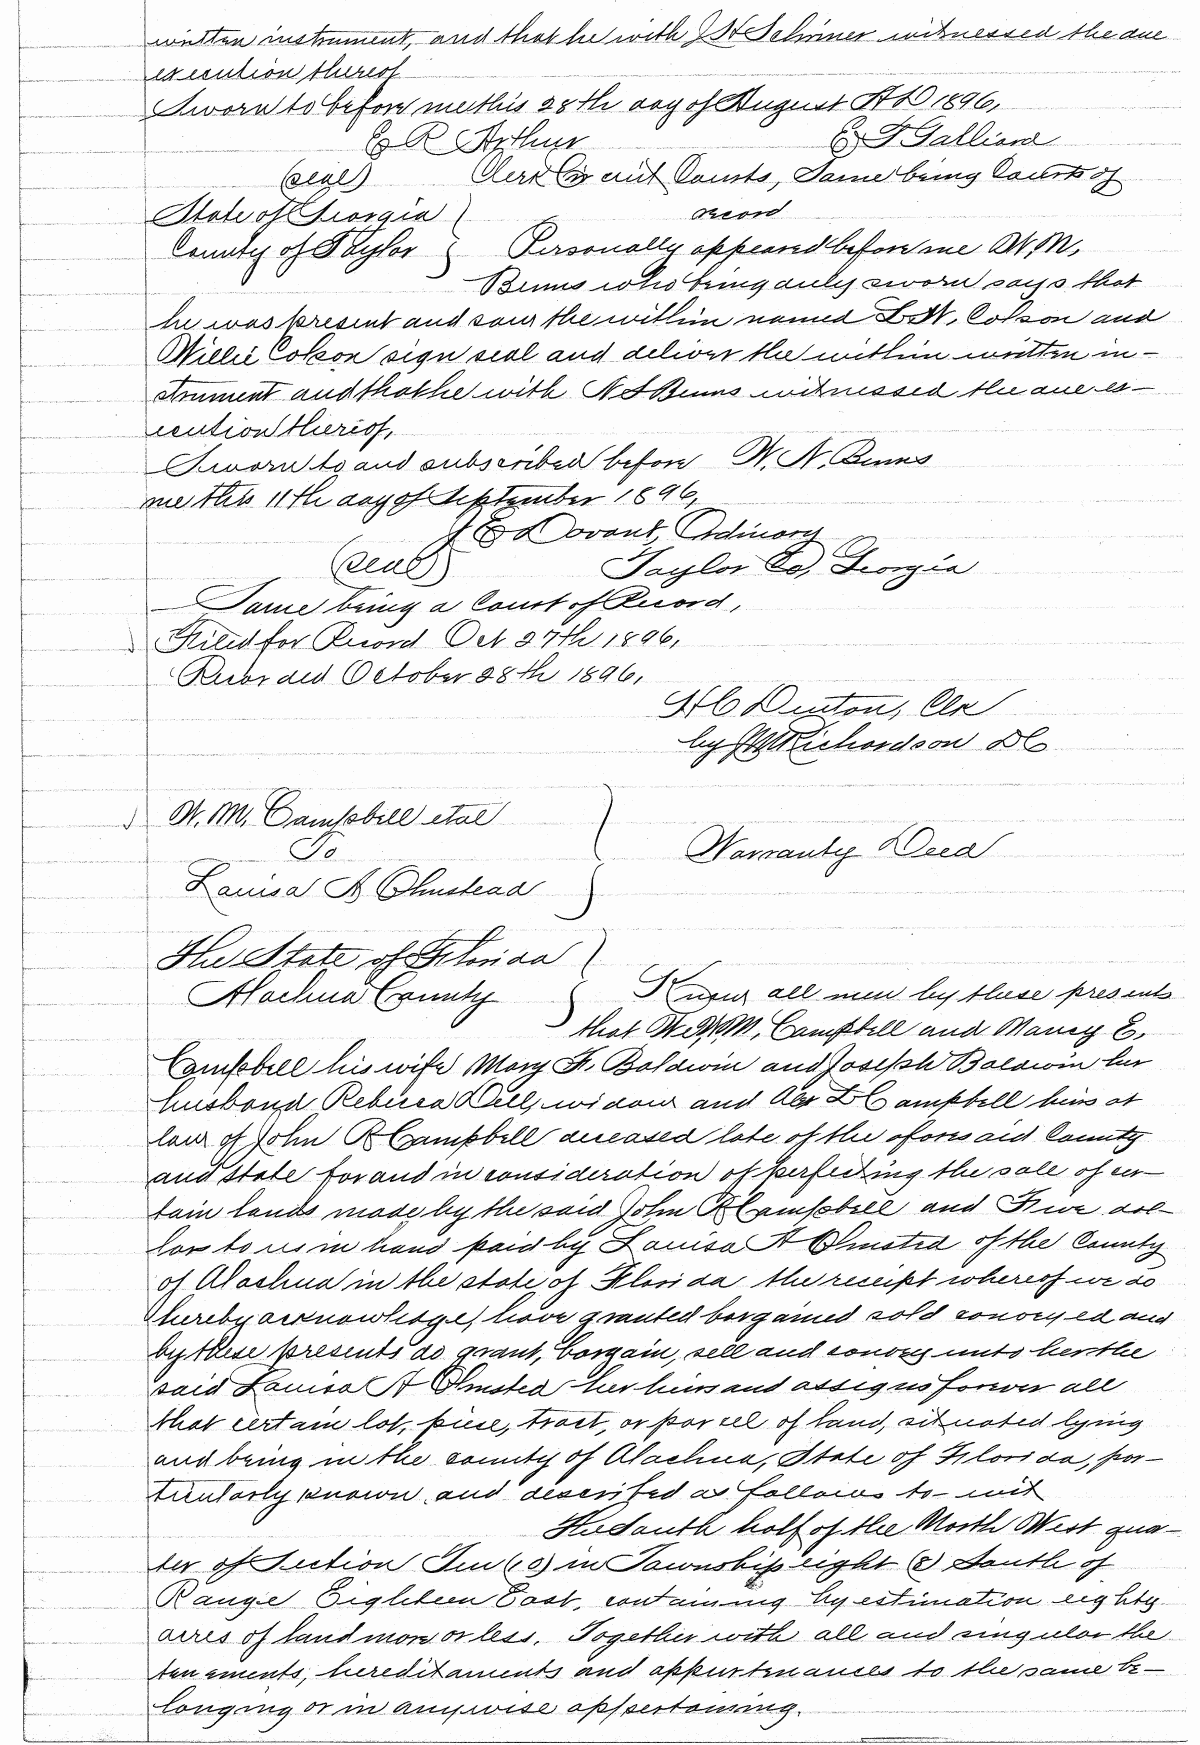 written instrument, and that he with J H Schriner witnessed the due
execution thereof
Sworn to before me this 28th day of August A D 1896,
E R Arthur E T Galliard
(seal) Clerk Circuit Courts, Same being Courts of
record
State of Georgia
County of Taylor Personally appeared before me W. M.
Benns who being duly sworn says that
he was present and saw the within named L W. Colson and
Willie Colson sign seal and deliver the within written in-
strument and that he with N S Benns witnessed the due ex-
ecution thereof,
Sworn to and subscribed before W. N. Benns
me this 11th day of September 1896,
J E Dovant, Ordinary
(seal) Taylor Co, Georgia
Same being a Court of Record,
Filed for Record Oct 27th 1896,
Recorded October 28th 1896,
H C Denton, Clk
by J M Richardson D C
W. M. Campbell et al
To Warranty Deed
Louisa A Olmstead
The State of Florida
Alachua County Know all men by these presents
that We W. M. Campbell and Nancy E.
Campbell his wife Mary F. Baldwin and Joseph Baldwin her
husband Rebecca Dell, widow and Alex D Campbell heirs at
law of John R Campbell deceased late of the aforesaid County
and State for and in consideration of perfecting the sale of cer-
tain lands made by the said John R Campbell and Five dol-
lars to us in hand paid by Louisa A Olmsted of the County
of Alachua in the state of Florida the receipt whereof we do
hereby acknowledge, have granted bargained sold conveyed and
by these presents do grant, bargain, sell and convey unto her the
said Louisa A Olmsted her heirs and assigns forever all
that certain lot, piece, tract, or parcel of land, situated lying
and being in the county of Alachua, State of Florida, par-
ticularly known and described as follows to-wit
The South half of the North West quar-
ter of Section Ten (10) in Township eight (8) South of
Range Eighteen East, containing by estimation eighty
acres of land more or less. Together with all and singular the
tenements, hereditaments and appurtenances to the same be-
longing or in anywise appertaining.